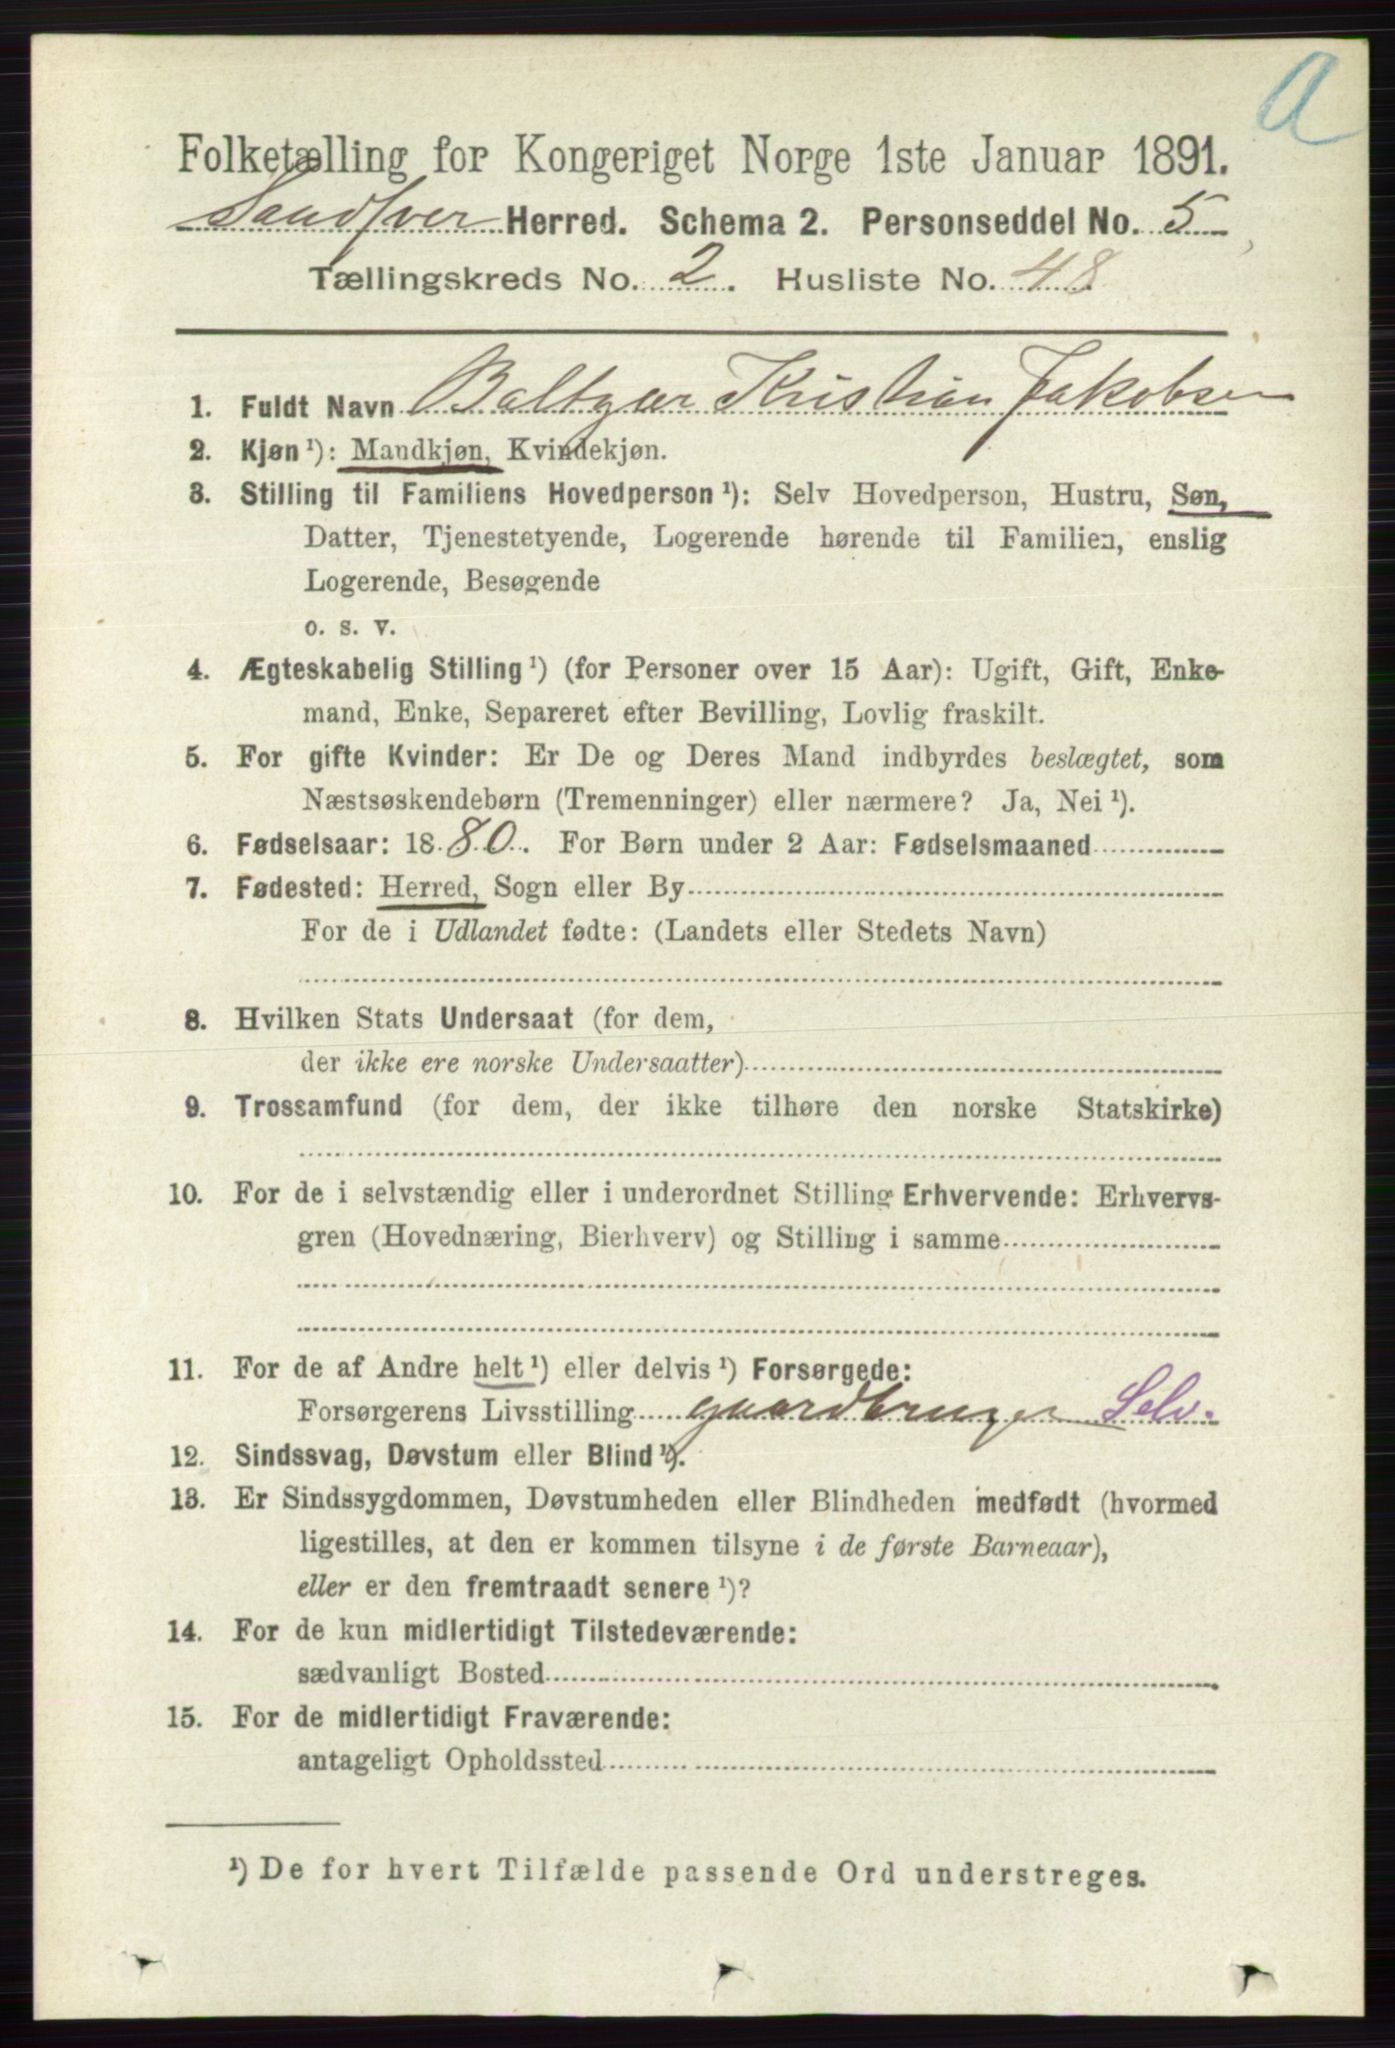 a
Folketælling for Kongeriget Norge 1ste Januar 1891.
Sandsver Herred. Schema 2. Personseddel No. 5
Tællingskreds No. 2. Husliste No. 48
1. Fuldt Navn Baltzar Kristian Jakobsen
2. Kjøn ¹): Mandkjøn, Kvindekjøn.
3. Stilling til Familiens Hovedperson ¹): Selv Hovedperson, Hustru, Søn,
Datter, Tjenestetyende, Logerende hørende til Familien, enslig
Logerende, Besøgende
o. s. v.
4. Ægteskabelig Stilling ¹) (for Personer over 15 Aar): Ugift, Gift, Enke-
mand, Enke, Separeret efter Bevilling, Lovlig fraskilt.
5. For gifte Kvinder: Er De og Deres Mand indbyrdes beslægtet, som
Næstsøskendebørn (Tremenninger) eller nærmere? Ja, Nei ¹).
6. Fødselsaar: 1880. For Børn under 2 Aar: Fødselsmaaned
7. Fødested: Herred, Sogn eller By
For de i Udlandet fødte: (Landets eller Stedets Navn)
8. Hvilken Stats Undersaat (for dem,
der ikke ere norske Undersaatter)
9. Trossamfund (for dem, der ikke tilhøre den norske Statskirke)
10. For de i selvstændig eller i underordnet Stilling Erhvervende: Erhvervs-
gren (Hovednæring, Bierhverv) og Stilling i samme
11. For de af Andre helt ¹) eller delvis ¹) Forsørgede:
Forsørgerens Livsstilling gaardbruger Selv.
12. Sindssvag, Døvstum eller Blind ¹).
13. Er Sindssygdommen, Døvstumheden eller Blindheden medfødt (hvormed
ligestilles, at den er kommen tilsyne i de første Barneaar),
eller er den fremtraadt senere ¹)?
14. For de kun midlertidigt Tilstedeværende:
sædvanligt Bosted
15. For de midlertidigt Fraværende:
antageligt Opholdssted
¹) De for hvert Tilfælde passende Ord understreges.